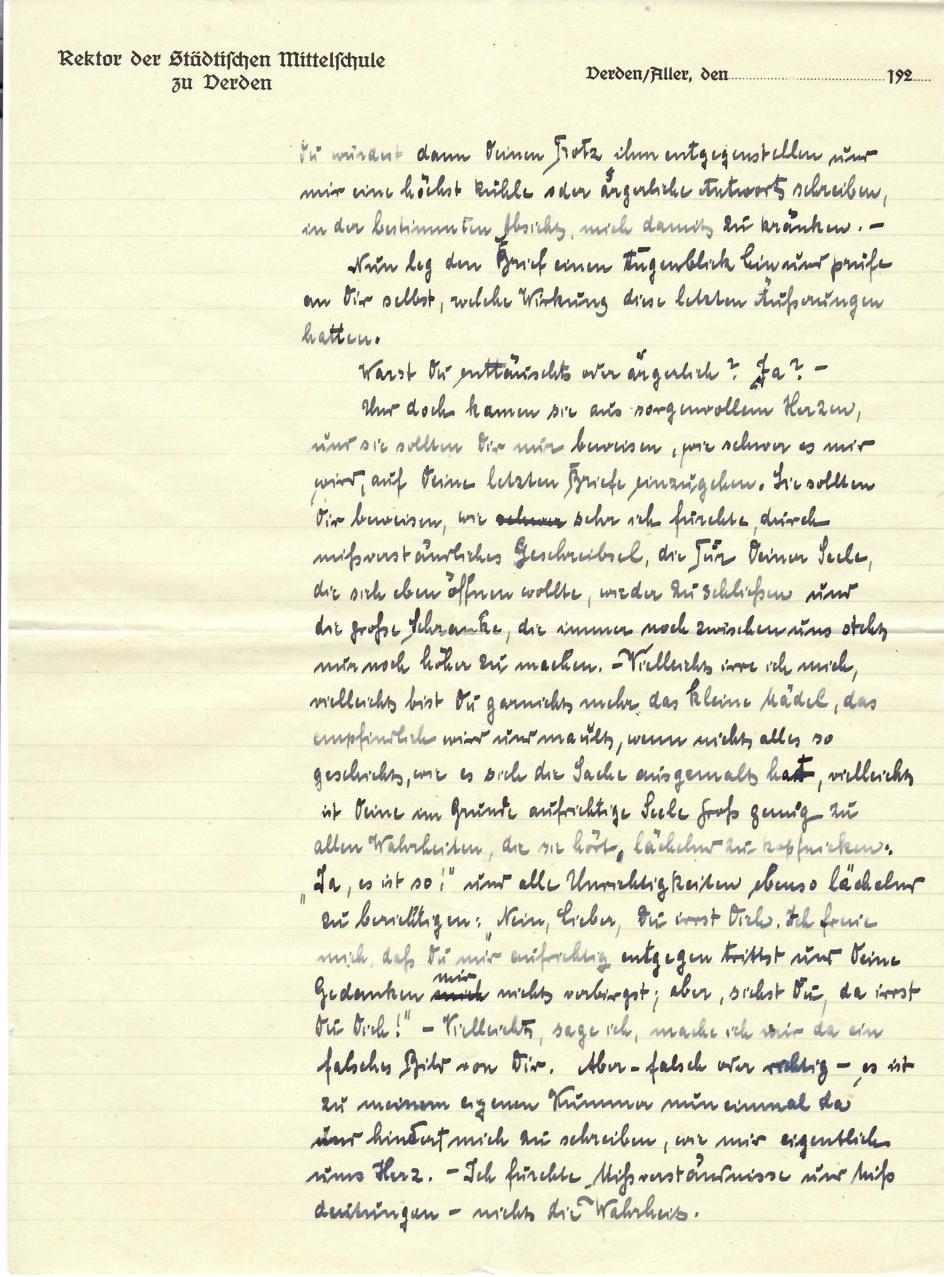 Rektor der Städtischen Mittelschule
zu Verden
Verden/Aller, den 192
Du würdest dann Deinen Trotz ihm entgegenstellen und
mir eine höchst kühle oder ärgerliche Antwort schreiben,
in der bestimmten Absicht, mich damit zu kränken. –
Nun leg den Brief einen Augenblick hin und prüfe
an Dir selbst, welche Wirkung diese letzten Äußerungen
hatten.
Warst Du enttäuscht oder ärgerlich? Ja? –
Und doch kamen sie aus sorgenvollem Herzen,
und sie sollten Dir nur beweisen, wie schwer es mir
wird, auf Deine letzten Briefe einzugehen. Sie sollten
Dir beweisen, wie schwer sehr ich fürchte, durch
mißverständliches Geschreibsel, die Tür Deiner Seele,
die sich eben öffnen wollte, wieder zu schließen und
die große Schranke, die immer noch zwischen uns steht
nur noch höher zu machen. – Vielleicht irre ich mich,
vielleicht bist Du garnicht mehr das kleine Mädel, das
empfindlich wird und mault, wenn nicht alles so
geschieht, wie es sich die Sache ausgemalt hat, vielleicht
ist Deine im Grunde aufrichtige Seele groß genug zu
allen Wahrheiten, die sie hört, lächelnd zu kopfnicken:
„Ja, es ist so!" und alle Unrichtigkeiten ebenso lächelnd
zu berichtigen: „Nein, Lieber, Du irrst Dich. Ich freue
mich, daß Du mir aufrichtig entgegen trittst und Deine
Gedanken mich mir nicht verbirgst; aber, siehst Du, da irrst
Du Dich!" – Vielleicht, sage ich, mache ich mir da ein
falsches Bild von Dir. Aber – falsch oder richtig – es ist
zu meinem eigenen Kummer nun einmal da
und hindert mich zu schreiben, wie mir eigentlich
ums Herz. – Ich fürchte Mißverständnisse und Miß
deutungen – nicht die Wahrheit.